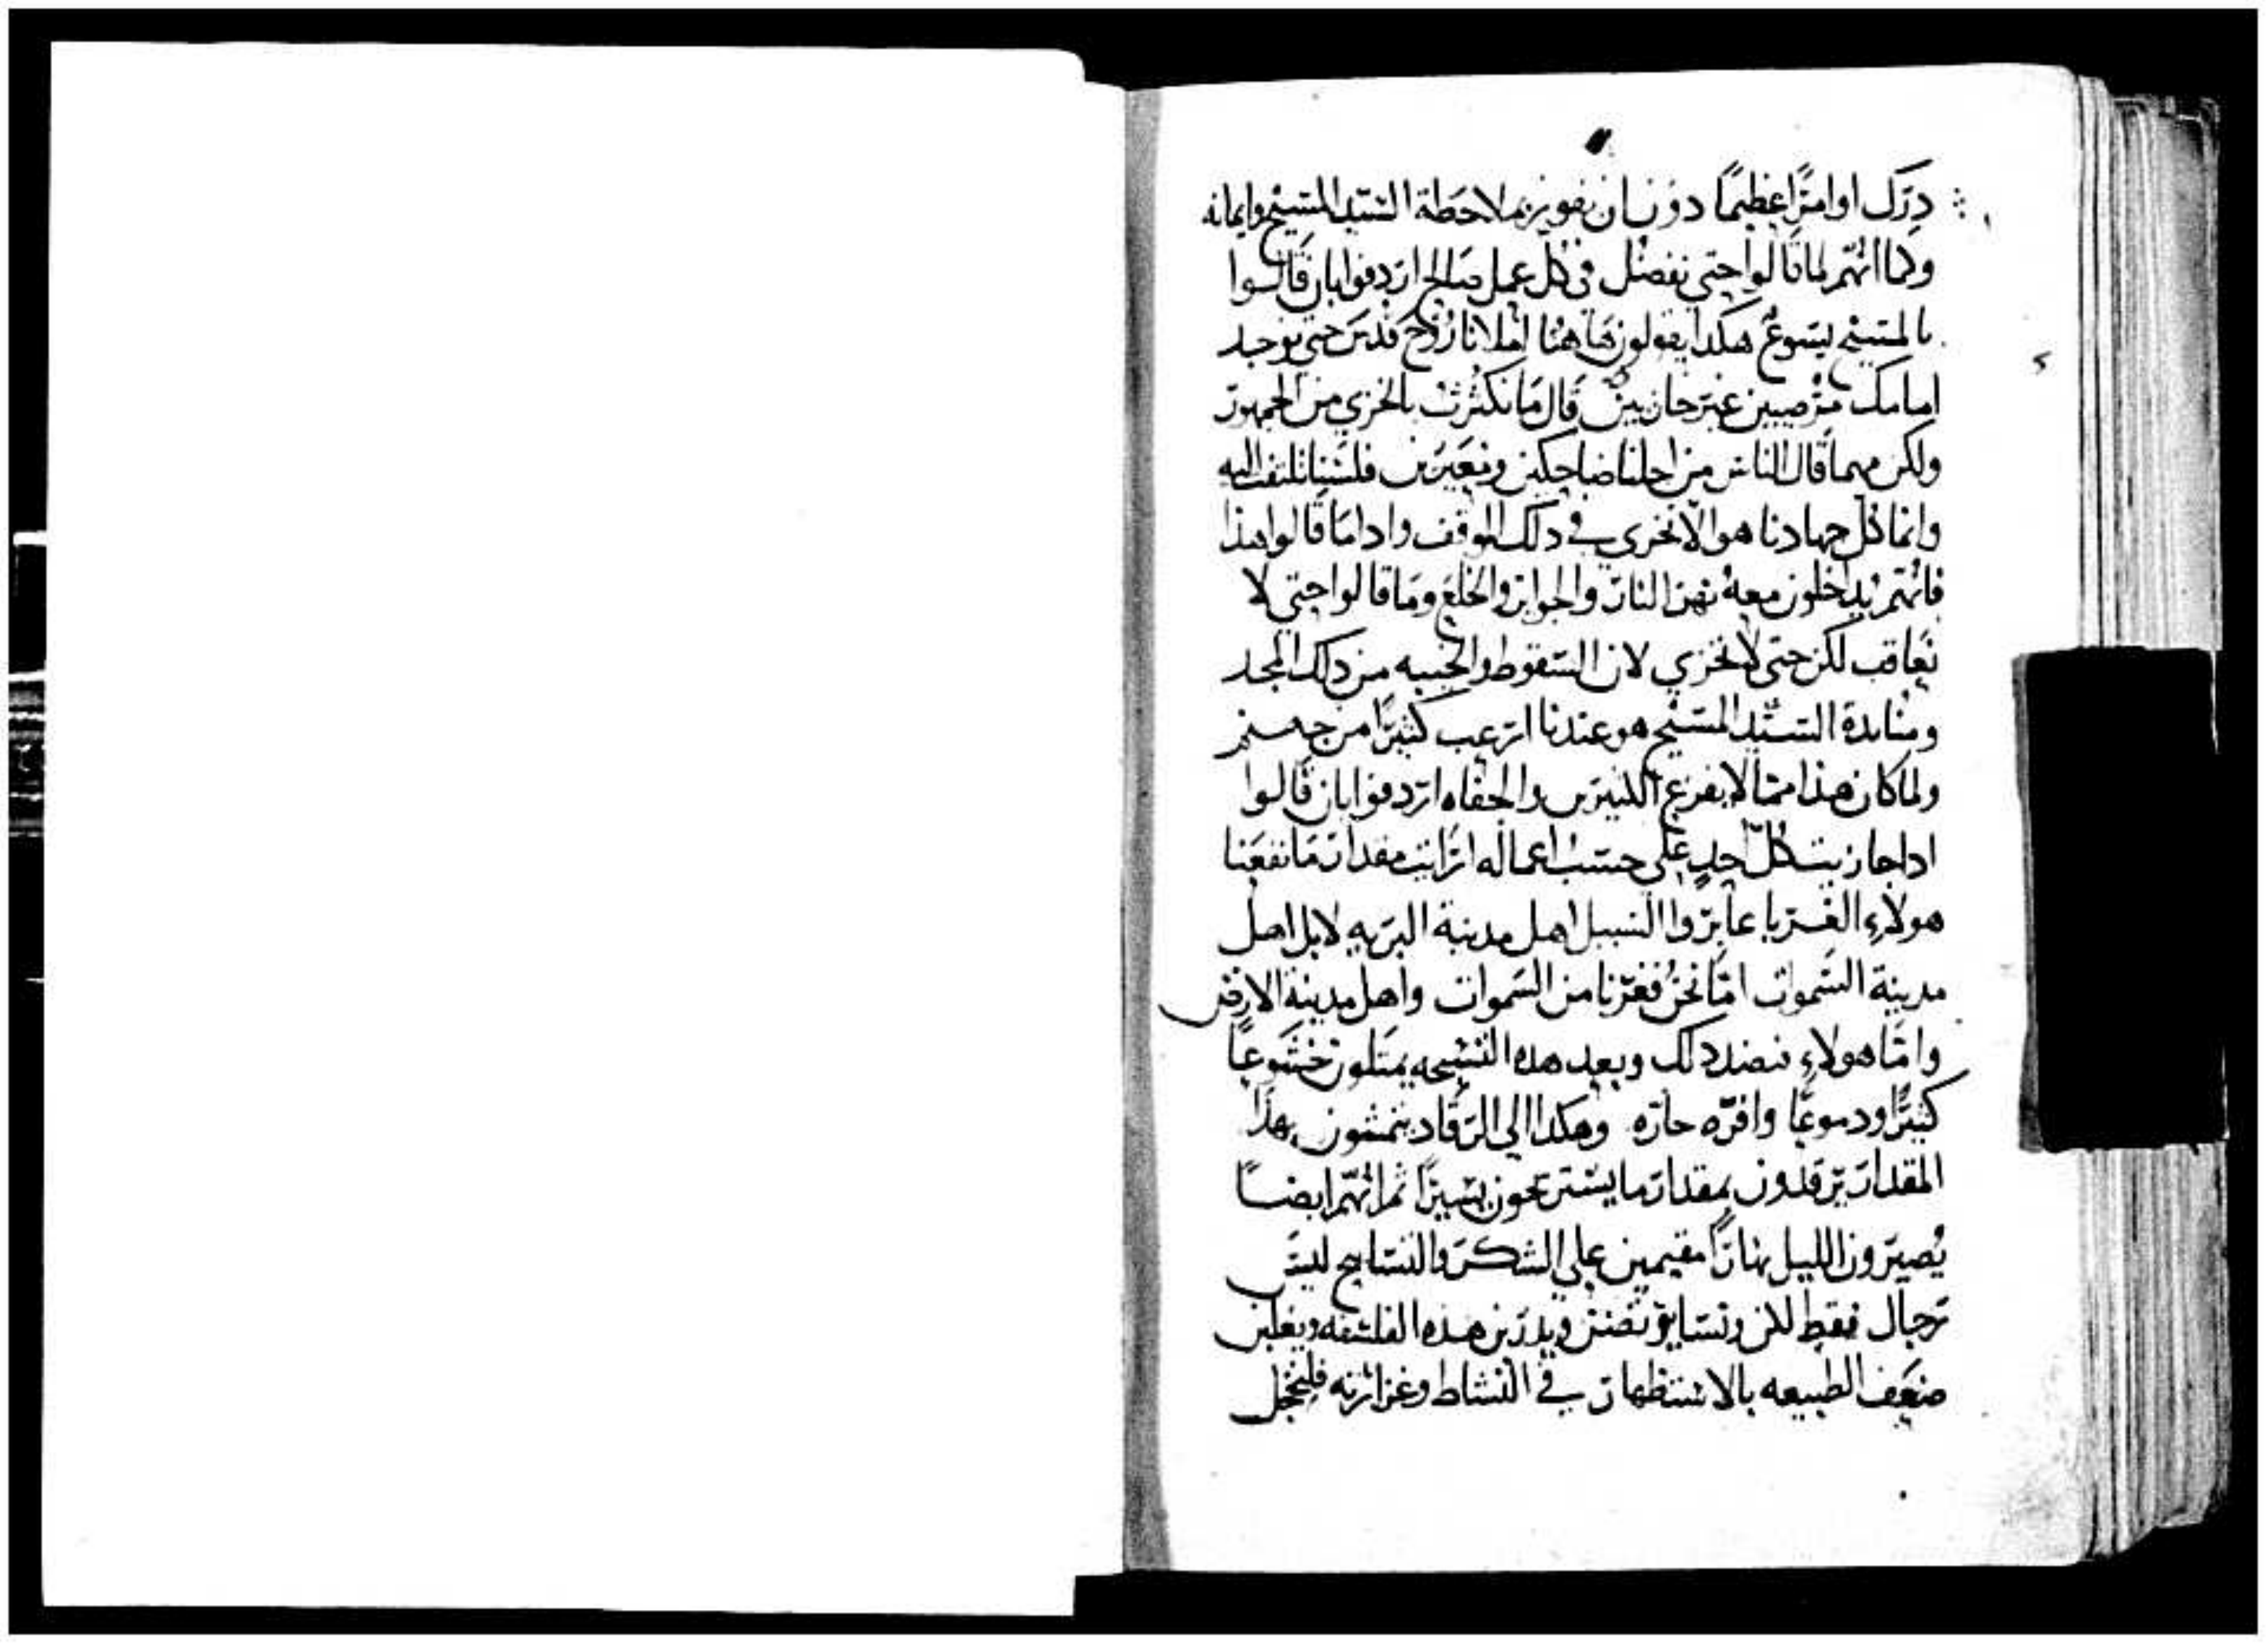 درك اوامرًا عظيمًا دون ان نفوز بملاحظة السيد المسيح وايمانه
وكما انهم لما قالوا حتي نفضل في كل عمل صالح اردفوا بان قالوا
بالمسيح يسوع هكدا يقولون هاهنا املانا روح قدس حتي نوجد
امامك مرضيين غير خازيين قال ما نكترث بالخزي من الجمهور
ولكن مهما قال الناس من اجلنا ضاحكين ومعيرين فلسنا نلتفت اليه
وانما كل جهادنا هو الا نخزي في دلك الموقف وادا ما قالوا هذا
فانهم يداخلون معه نهر النار والجوايز والخلع وما قالوا حتي لا
نعاقب لكن حتي لا نخزي لان السقوط والخيبه من دلك المجد
ومنابدة السيد المسيح هو عندنا ارعب كثيرًا من جهنم
ولما كان هذا مما لا يفزع الكثيرين والجفاه اردفوا بان قالوا
ادا جازيت كل احدٍ علي حسب اعماله ارايت مقدار ما نفعنا
هولاء الغربا عابروا السبيل اهل مدينة البريه لا بل اهل
مدينة السموات اما نحن فغربا من السموات واهل مدينة الارض
واما هولاء فبضد دلك وبعد هده التسبحه يمتلون خشوعًا
كثيرًا ودموعًا وافره حاره وهكدا الي الرقاد يمشون بهذا
المقدار يرقدون بمقدار ما يستريحون يسيرًا ثم انهم ايضًا
يُصيرون الليل نهارًا مقيمين علي الشكر والتسابيح ليس
رجال فقط لكن ونسا يوثضن ويدرين هده الفلسفه ويغلبن
ضعف الطبيعه بالاستظهار في النشاط وغزارته فليخجل